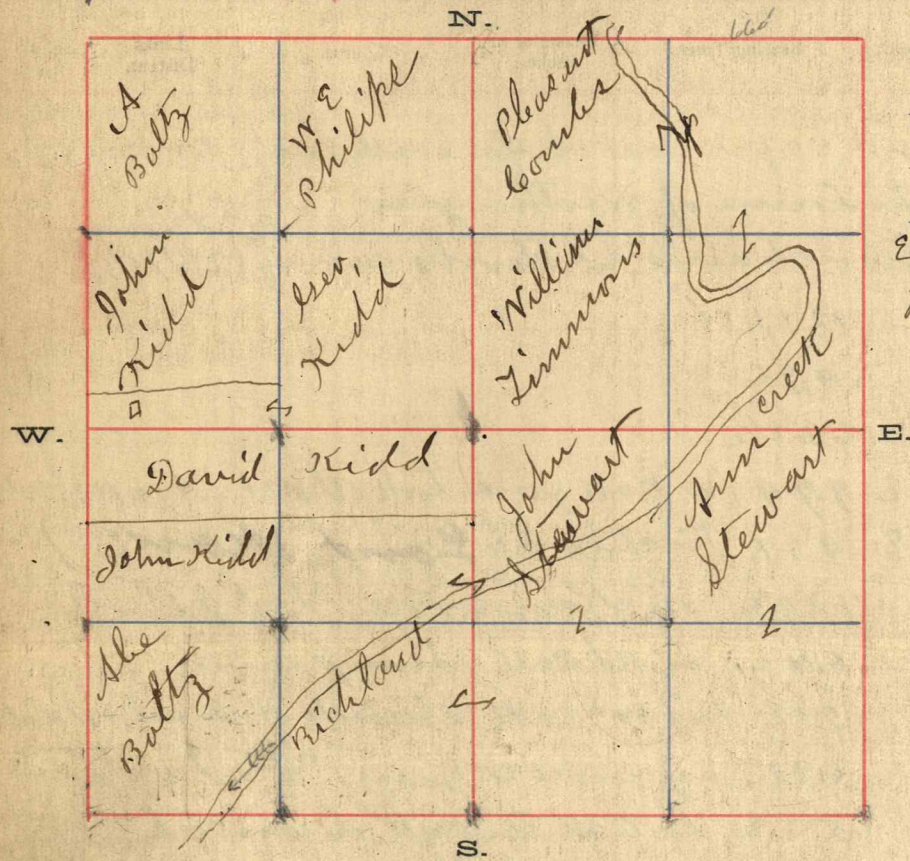 N.
A
Boltz
W E
Philips
Pleasant
Combs
John
Kidd
Geo
Kidd
William
Timmons
E
W.
E.
David Kidd
John Kidd
John
Stewart
creek
Ann
Stewart
Abe
Boltz
Richland
S.